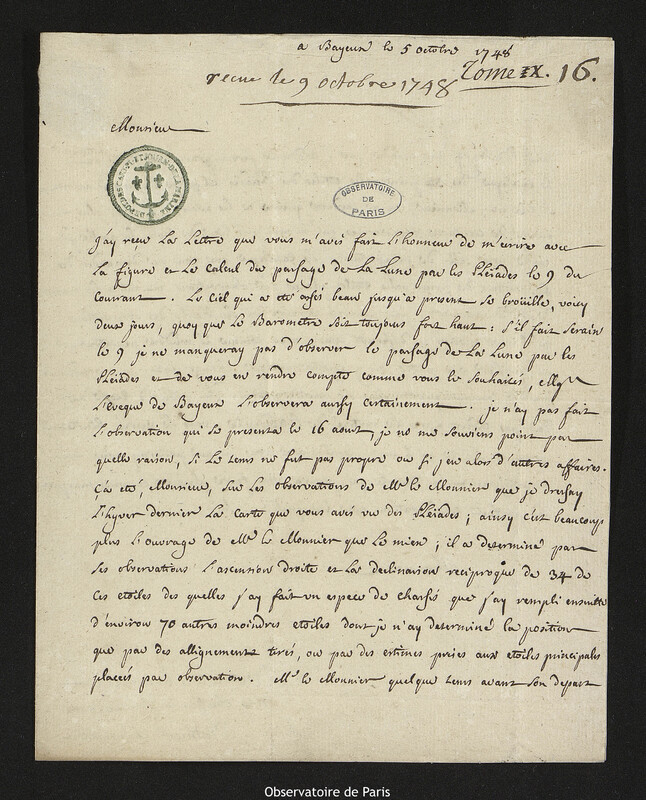 a Bayeux le 5 octobre 1748
recue le 9 octobre 1748 Tome IX. 16.
Monsieur
OBSERVATOIRE
DE
PARIS
j'ay reçu La Lettre que vous m'avés fait L'honneur de m'ecrire avec
La figure et Le Calcul du passage de La Lune par les Pléiades le 9 du
Courant. Le Ciel qui a eté assés beau jusqu'a present se broüille, voicy
deux jours, quoy que Le Barometre soit toujours fort haut: s'il fait serain
le 9 je ne manqueray pas d'observer le passage de La Lune par les
Pléiades et de vous en rendre compte comme vous le souhaités, Mgr
L'eveque de Bayeux L'observera aussy certainement. je n'ay pas fait
L'observation qui se presenta le 16 aoust, je ne me souviens point par
quelle raison, si Le tems ne fut pas propre ou si j'eu alors d'autres affaires.
Ç'a eté, Monsieur, sur Les observations de Mr. le Monnier que je dressay
L'hyver dernier La Carte que vous avés vu des Pleiades; ainsy c'est beaucoup
plus L'ouvrage de Mr. le Monnier que Le mien; il a determiné par
ses observations L'ascension droite et La declinaison reciproque de 34 de
Ces etoiles des quelles j'ay fait un espece de chassis que j'ay rempli ensuite
d'environ 70 autres moindres etoiles dont je n'ay determiné la position
que par des allignements tirés, ou par des estimes prises aux etoiles principales
placés par observation. Mr. le Monnier quelque tems avant son depart
Observatoire de Paris